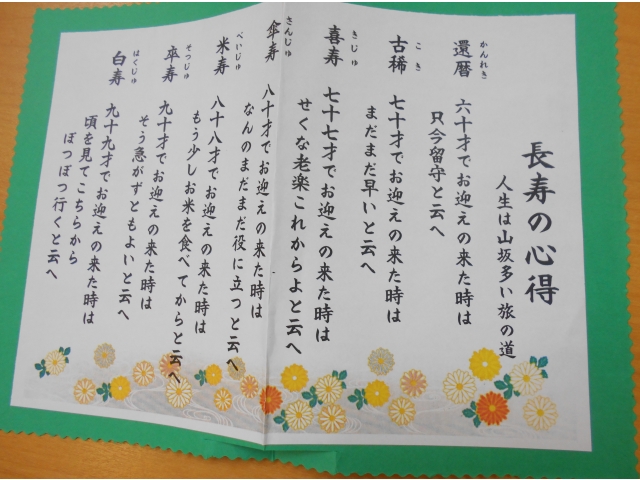 長寿の心得
人生は山坂多い旅の道
還暦 六十才でお迎えの来た時は
かんれき
只今留守と云へ
古稀 七十才でお迎えの来た時は
こき
まだまだ早いと云へ
喜寿 七十七才でお迎えの来た時は
きじゅ
せくな老楽これからよと云へ
傘寿 八十才でお迎えの来た時は
さんじゅ
なんのまだまだ役に立つと云へ
米寿 八十八才でお迎えの来た時は
べいじゅ
もう少しお米を食べてからと云へ
卒寿 九十才でお迎えの来た時は
そつじゅ
そう急がずともよいと云へ
白寿 九十九才でお迎えの来た時は
はくじゅ
頃を見てこちらから
ぼつぼつ行くと云へ